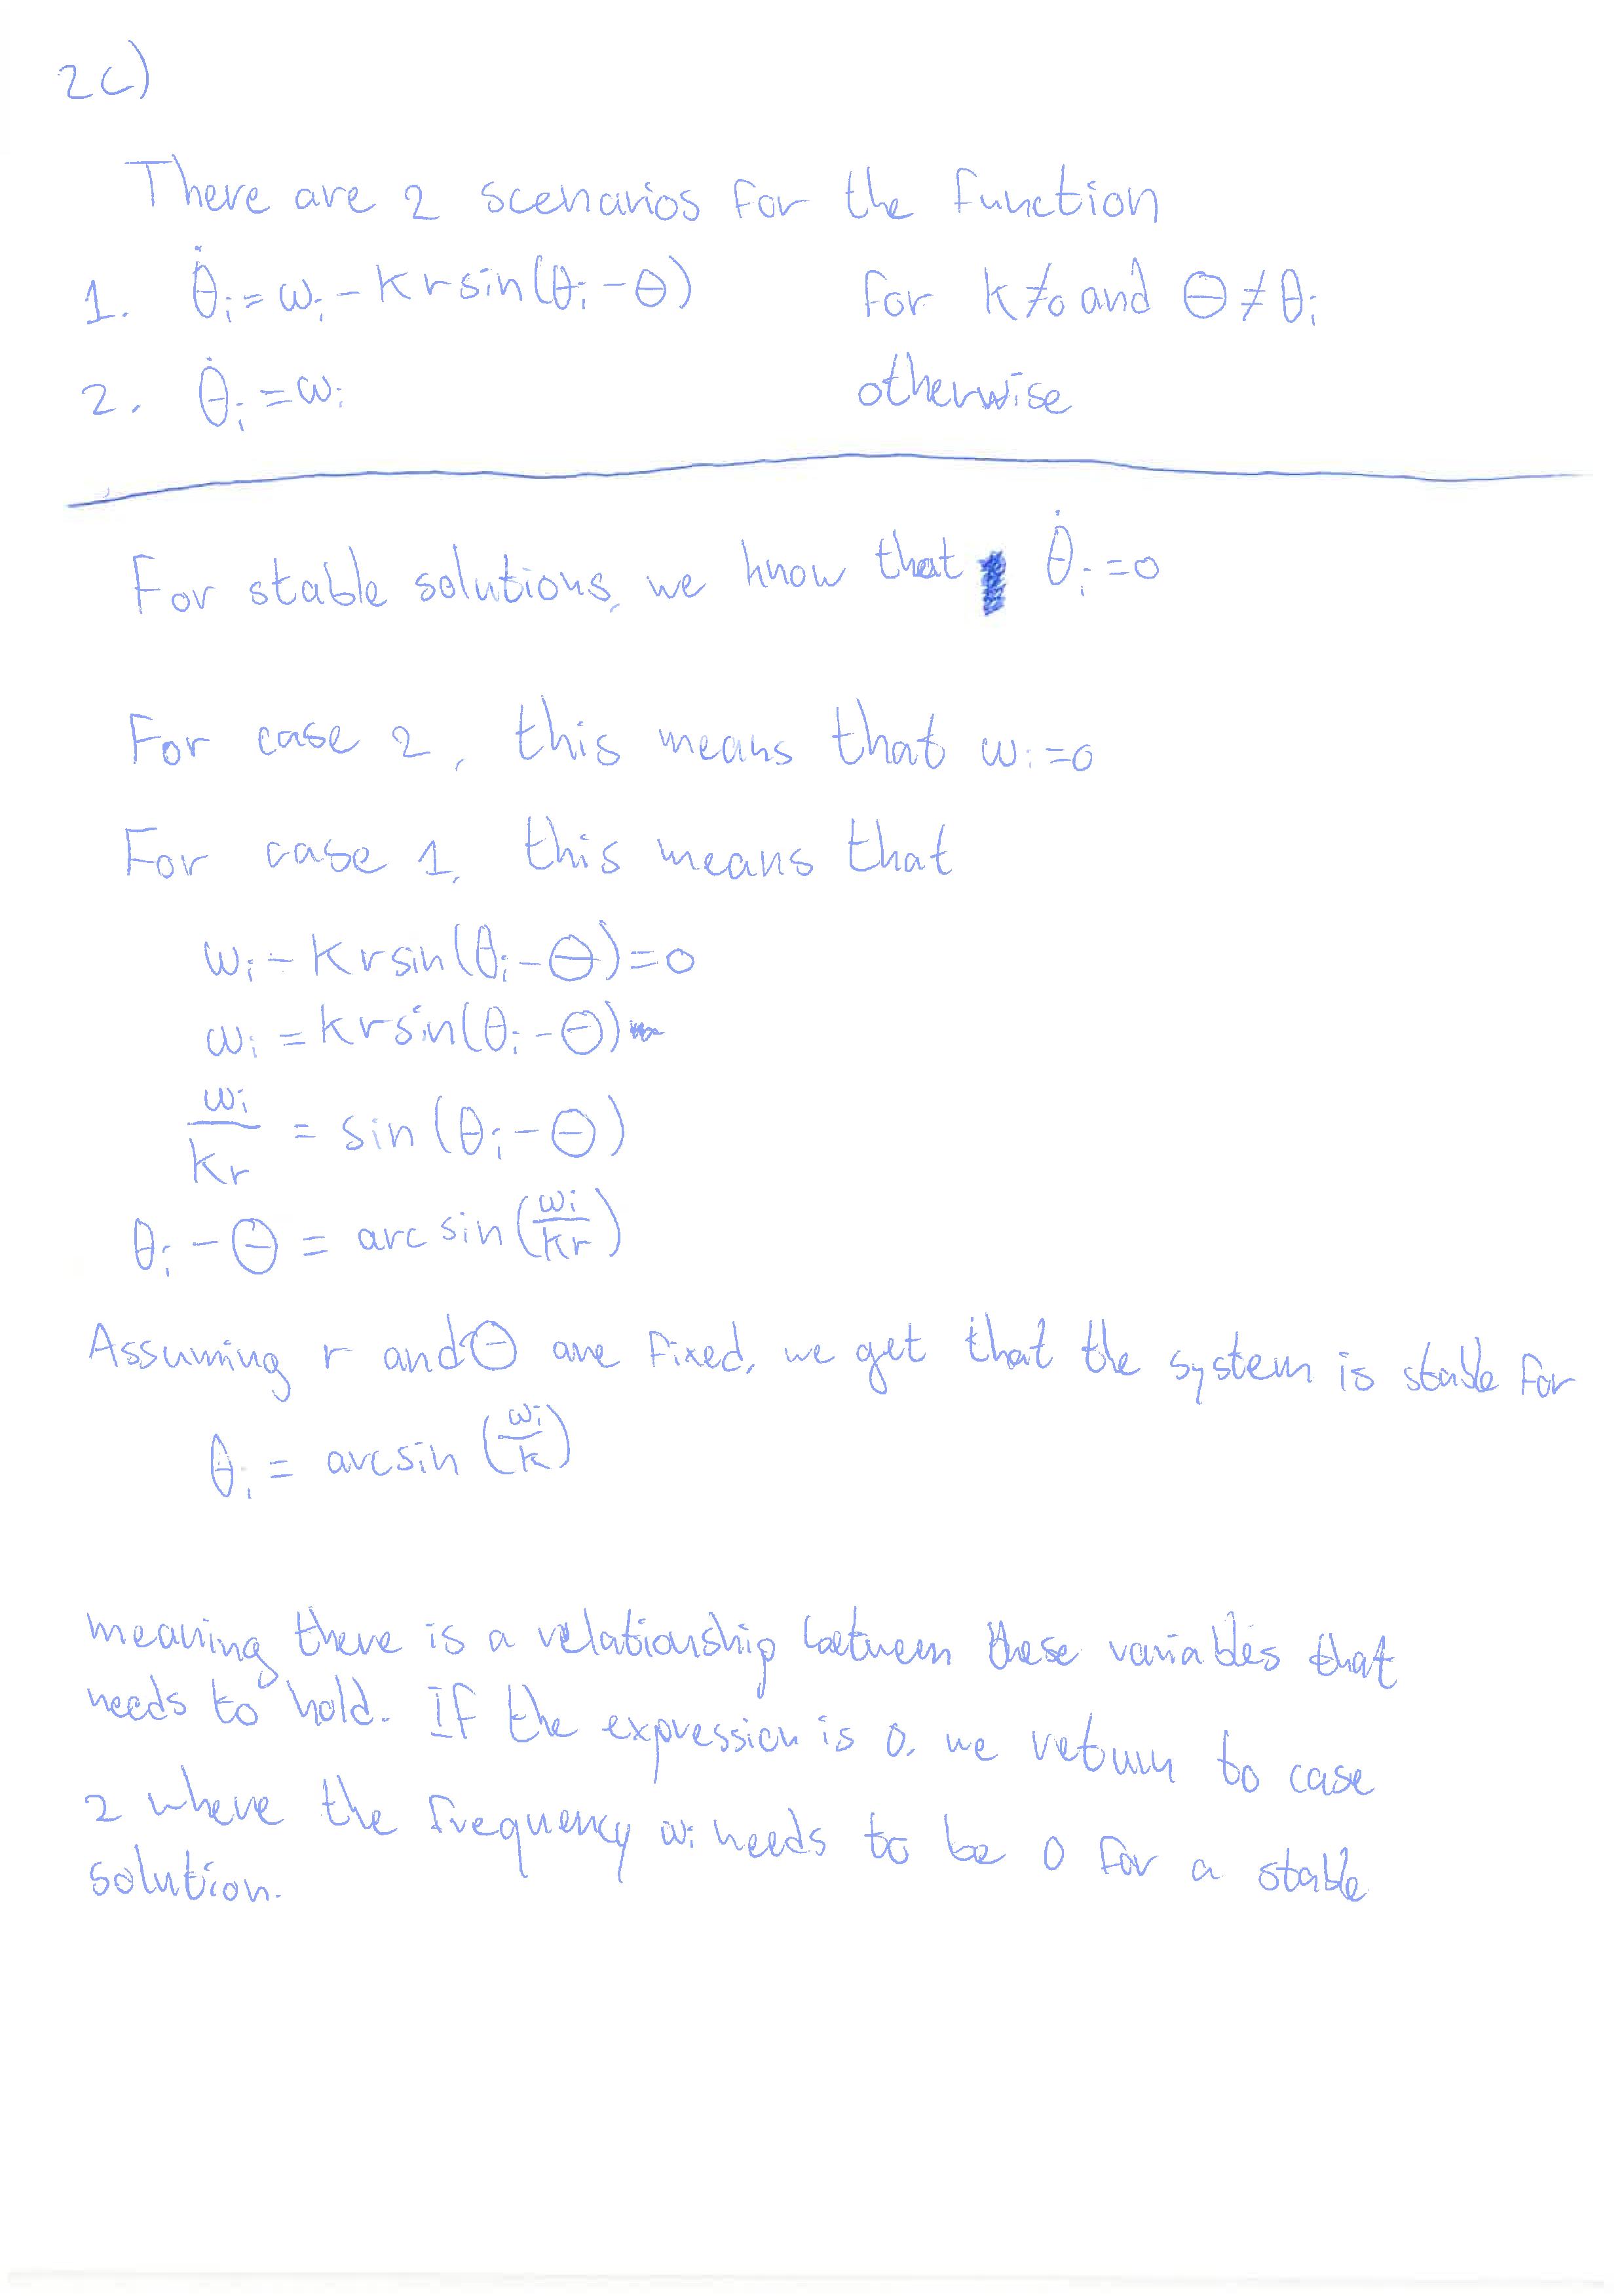 2c)
There are 2 scenarios for the function
1. θ̇ᵢ = ωᵢ - K r sin(θᵢ - Θ) for K≠0 and Θ ≠ θᵢ
2. θ̇ᵢ = ωᵢ otherwise
For stable solutions, we know that θ̇ᵢ = 0
For case 2, this means that ωᵢ = 0
For case 1, this means that
ωᵢ - K r sin(θᵢ - Θ) = 0
ωᵢ = K r sin(θᵢ - Θ)
ωᵢ/Kr = sin(θᵢ - Θ)
θᵢ - Θ = arcsin(ωᵢ/Kr)
Assuming r and Θ are fixed, we get that the system is stable for
θᵢ = arcsin(ωᵢ/K)
meaning there is a relationship between these variables that
needs to hold. If the expression is 0, we return to case
2 where the frequency ωᵢ needs to be 0 for a stable
solution.